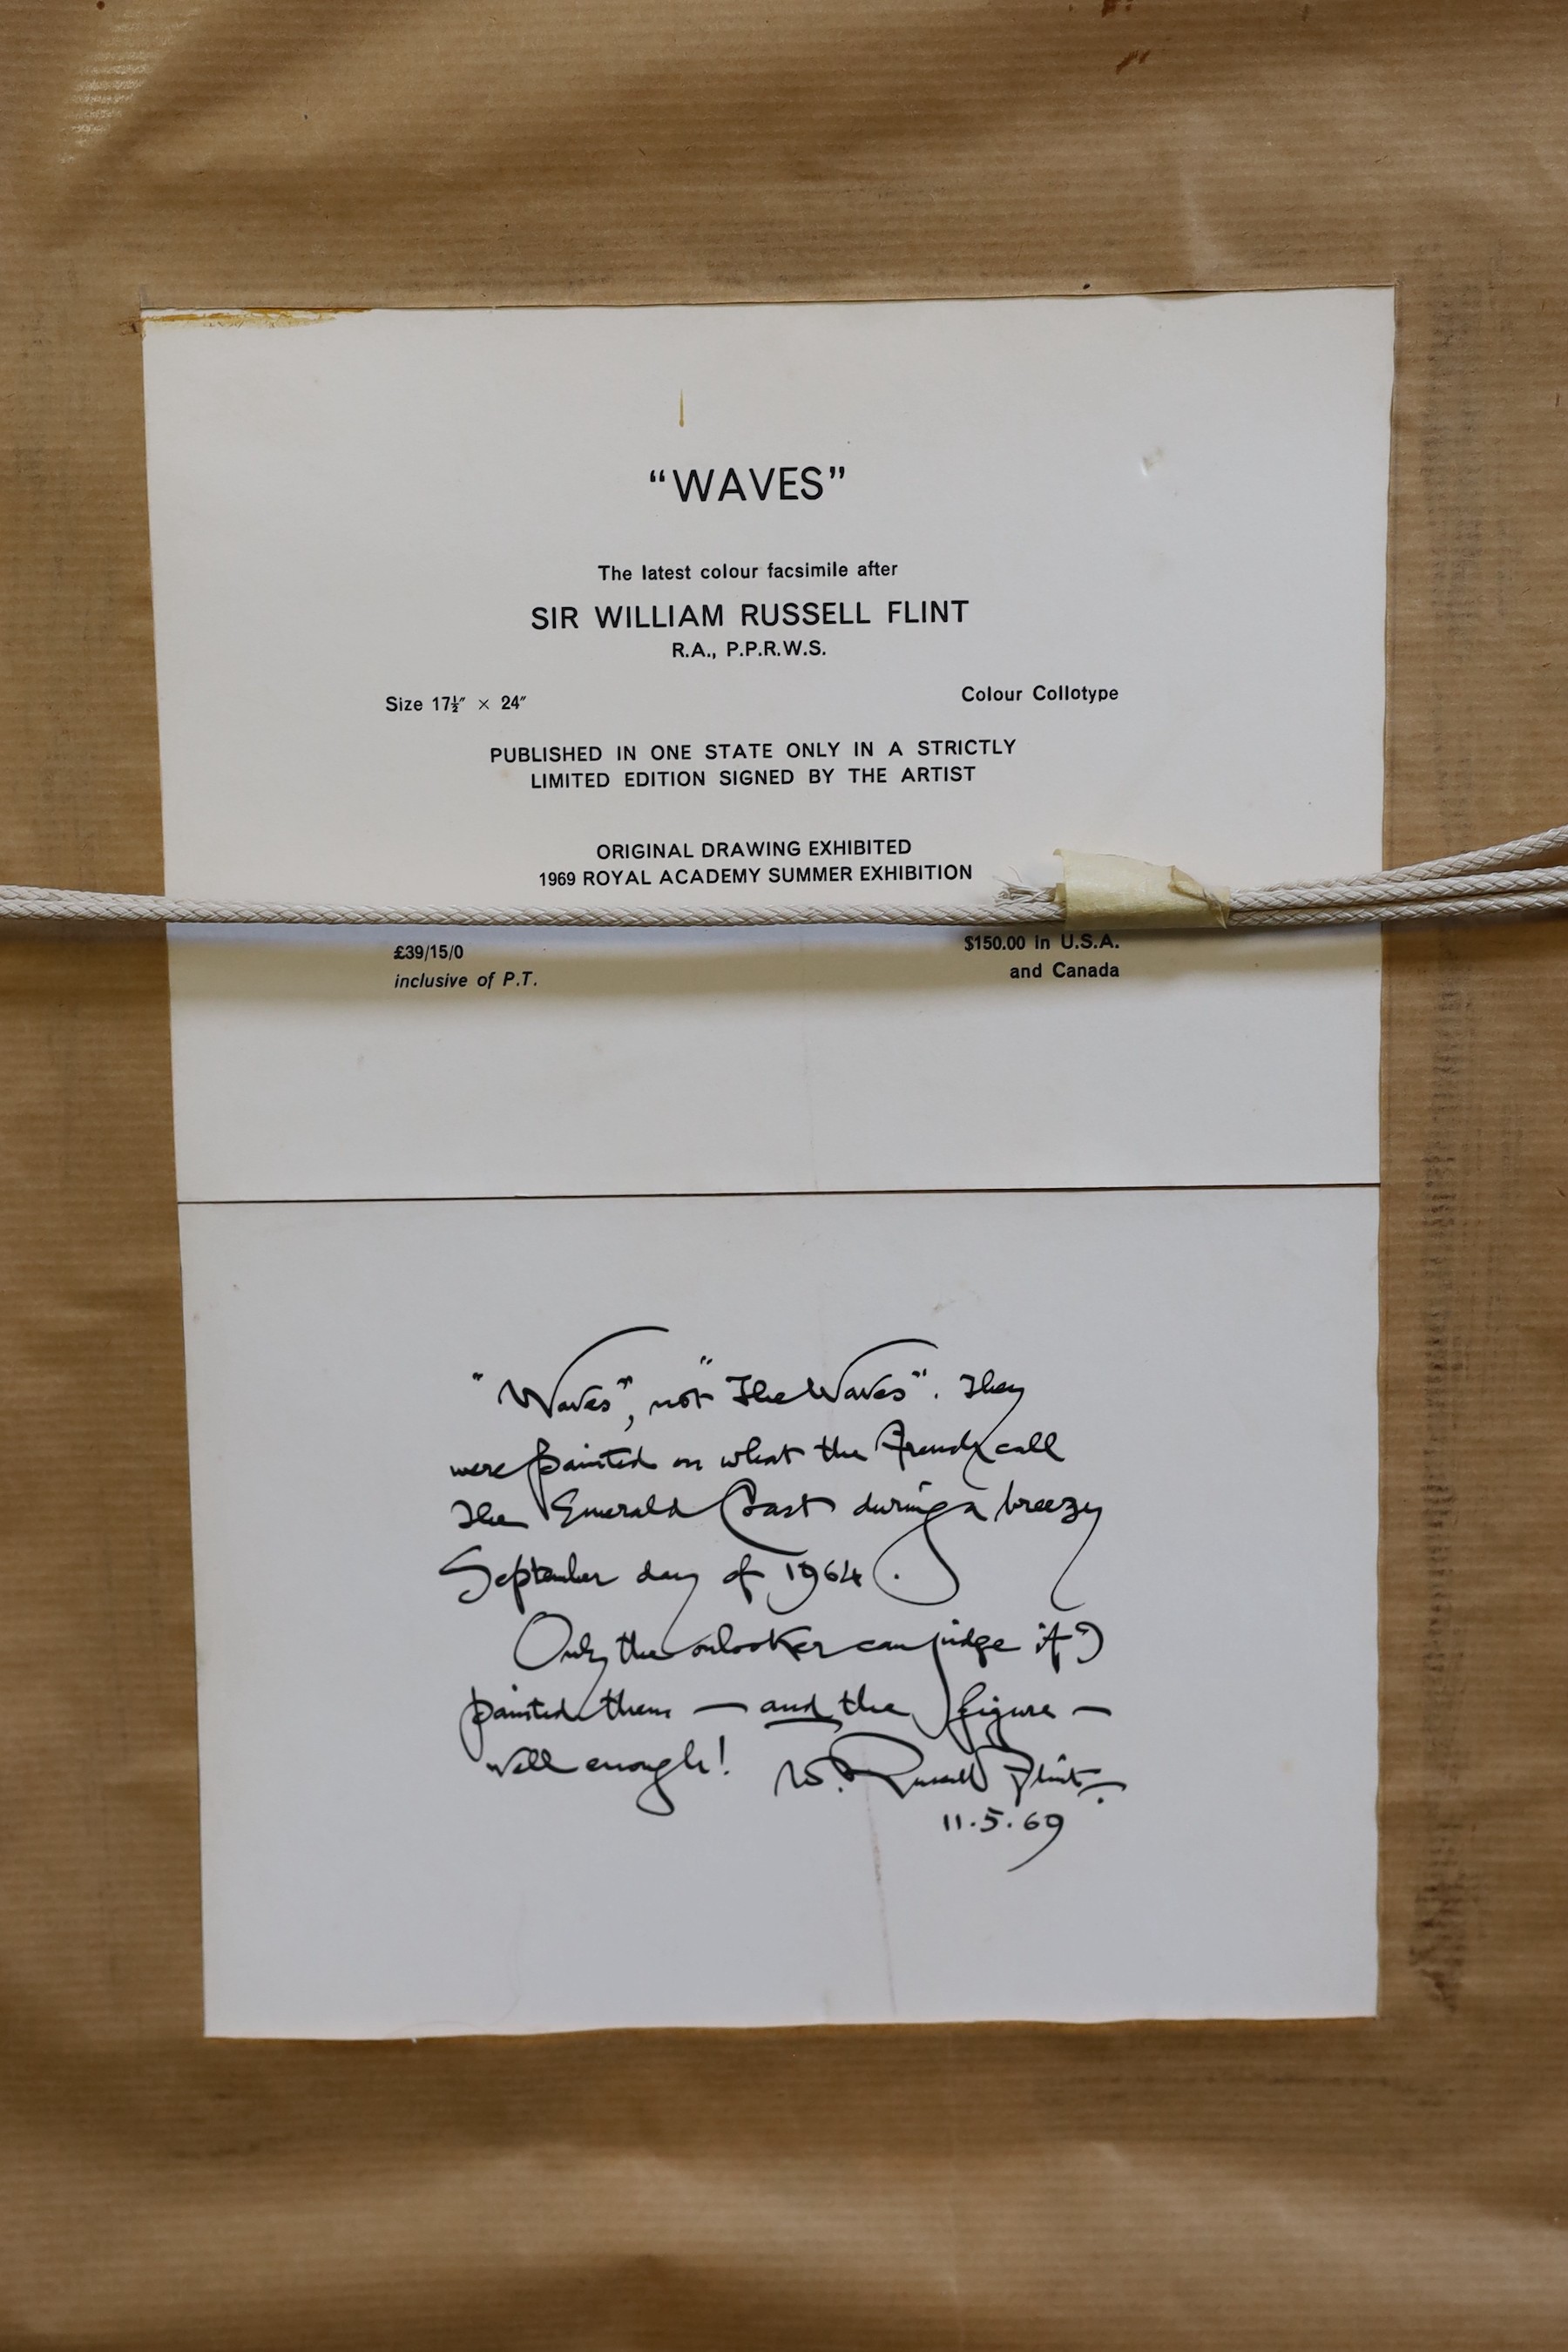 “WAVES”
The latest colour facsimile after
SIR WILLIAM RUSSELL FLINT
R.A., P.P.R.W.S.
Size 17½″ × 24″ Colour Collotype
PUBLISHED IN ONE STATE ONLY IN A STRICTLY
LIMITED EDITION SIGNED BY THE ARTIST
ORIGINAL DRAWING EXHIBITED
1969 ROYAL ACADEMY SUMMER EXHIBITION
£39/15/0 $150.00 in U.S.A.
inclusive of P.T. and Canada
"Waves", not "The Waves". They
were painted on what the French call
the Emerald Coast during a breezy
September day of 1964.
Only the onlooker can judge if I
painted them — and the figure —
well enough! W. Russell Flint.
11.5.69